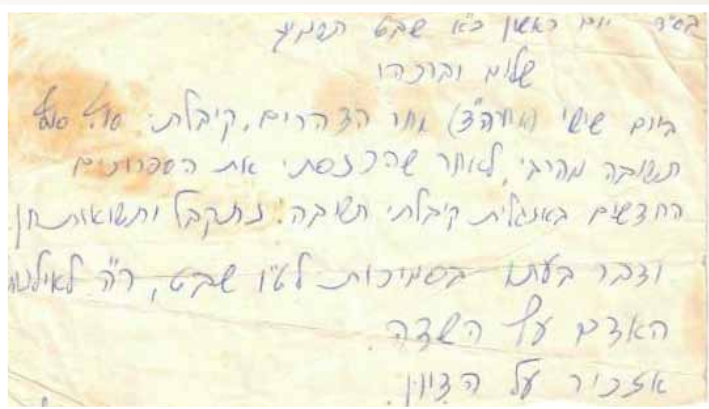 בס"ד יום ראשון כ"א שבט
שלום וברכה!
ביום שישי אחר הצהרים, קיבלתי
תשובה מהרבי, לאחר שהכנסתי את הספרונים
החדשים באנגלית קיבלתי תשובה: נתקבל ותשואות חן
ודבר בעתו בסמיכות לט"ו שבט, ר"ה לאילנות
האדם עץ השדה.
אזכיר על הציון.